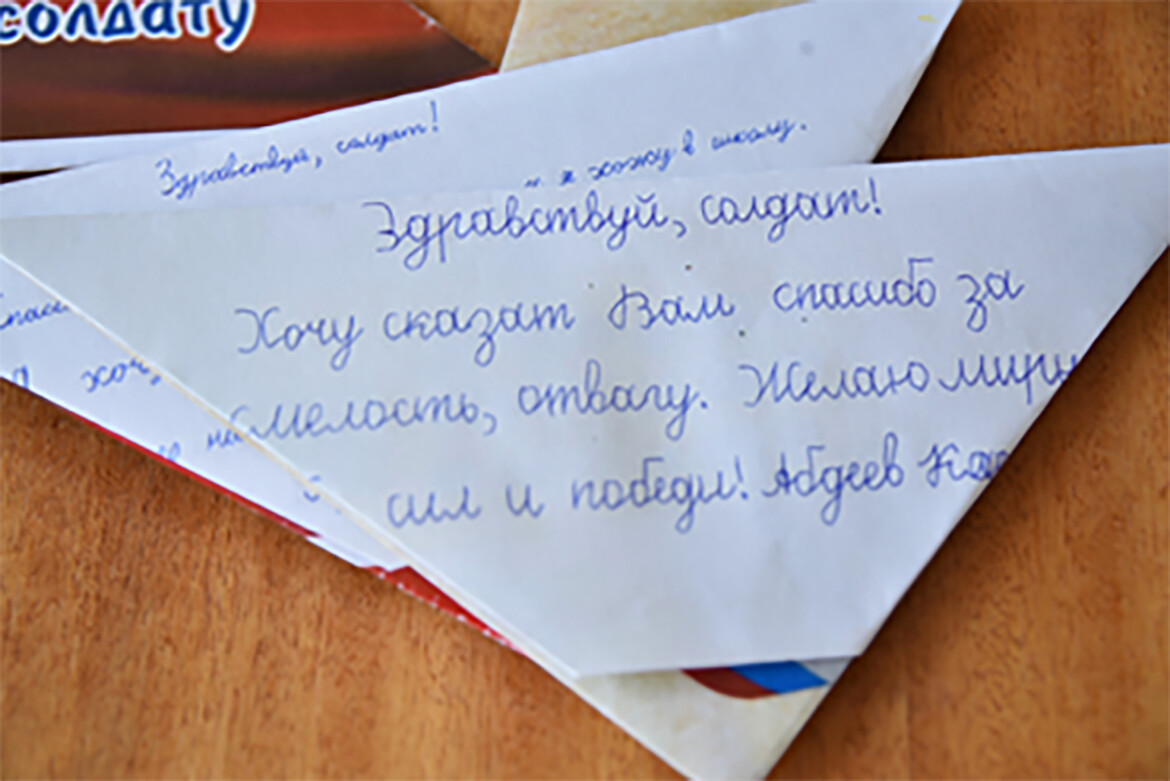 солдату
Здравствуй, солдат!
я хожу в школу.
Здравствуй, солдат!
Хочу сказат Вам спасибо за
смелость, отвагу. Желаю мира
сил и победы! Абдеев
хочу